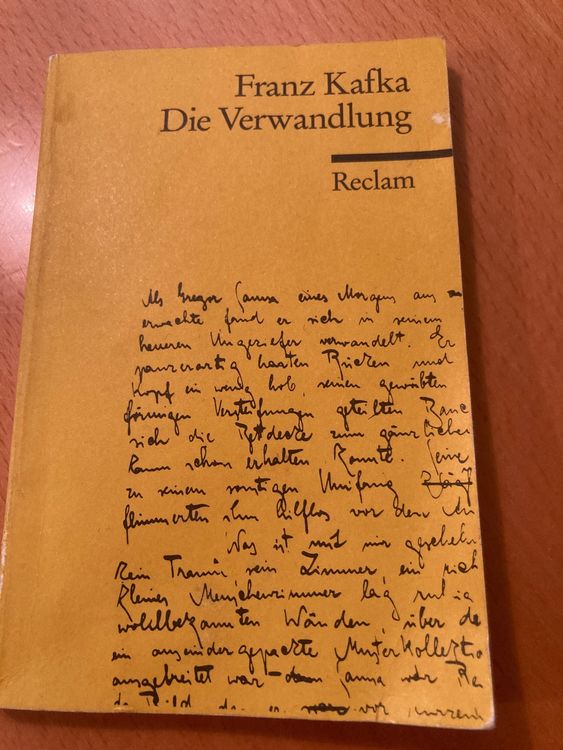 Franz Kafka
Die Verwandlung
Reclam
Als Gregor Samsa eines Morgens aus
erwachte fand er sich in seinem
heueren Ungeziefer verwandelt. Er
panzerartig harten Rücken und
Kopf ein wenig hob, seinen gewölbten
förmigen Versteifungen geteilten Bauc
sich die Bettdecke zum gänzlichen
kaum noch erhalten konnte. Seine
zu seinem sonstigen Umfang
flimmerten ihm hilflos vor den Au
Was ist mit mir gescheh
kein Traum, sein Zimmer, ein rich
kleines Menschenzimmer lag ruhig
wohlbekannten Wänden, über de
ein auseinandergepackte Musterkollektio
ausgebreitet war Samsa war Rei